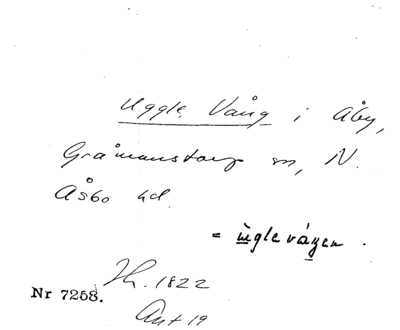 Uggle Vång i Åby,
Gråmanstorp sn, N.
Åsbo hd.
= ùglevángen.
Nr 7258. Th. 1822
Ant 19